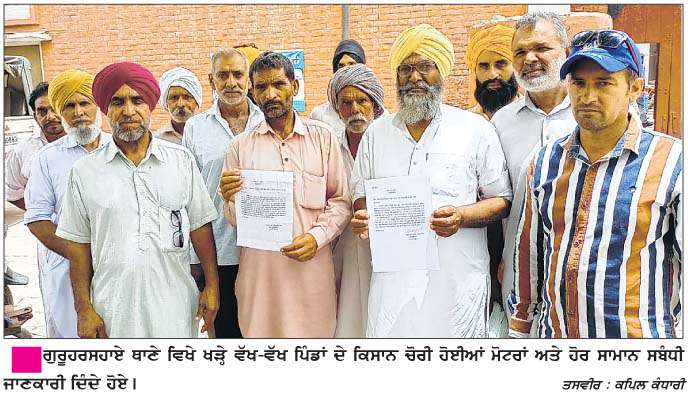 ਗੁਰੂਹਰਸਹਾਏ ਥਾਣੇ ਵਿਖੇ ਖੜ੍ਹੇ ਵੱਖ-ਵੱਖ ਪਿੰਡਾਂ ਦੇ ਕਿਸਾਨ ਚੋਰੀ ਹੋਈਆਂ ਮੋਟਰਾਂ ਅਤੇ ਹੋਰ ਸਾਮਾਨ ਸਬੰਧੀ
ਜਾਣਕਾਰੀ ਦਿੰਦੇ ਹੋਏ। ਤਸਵੀਰ : ਕਪਿਲ ਕੰਧਾਰੀ